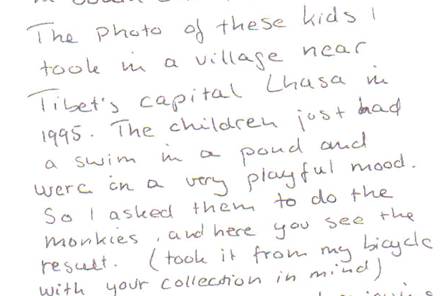 The photo of these kids I
took in a village near
Tibet's capital Lhasa in
1995. The children just had
a swim in a pond and
were in a very playful mood.
So I asked them to do the
monkies, and here you see the
result. (took it from my bicycle
with your collection in mind)